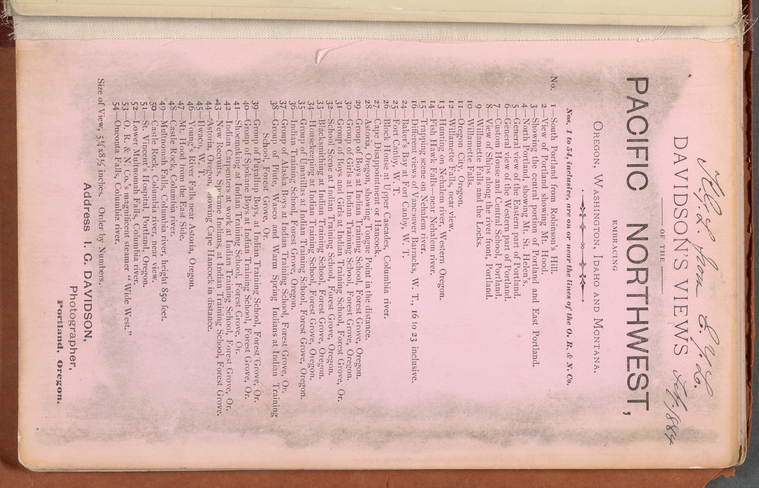 DAVIDSON'S VIEWS
OF THE
PACIFIC NORTHWEST,
EMBRACING
OREGON, WASHINGTON, IDAHO AND MONTANA.
Nos. 1 to 54, inclusive, are on or near the lines of the O. R. & N. Co.
No. 1—South Portland from Robinson's Hill.
2—View of Portland showing Mt. Hood.
3—Showing central portion of Portland and East Portland.
4—North Portland, showing Mt. St. Helen's.
5—General view of the Eastern part of Portland.
6—General view of the Western part of Portland.
7—Custom House and Central School, Portland.
8—View of Ships along the river front, Portland.
9—Willamette Falls and the Locks.
10 Willamette Falls.
11 Oregon City, Oregon.
12 Willamette Falls, near view.
13 Hunting on Nehalem river, Western Oregon.
14 Fish Hawk Falls—near Nehalem river.
15 Trapping scene on Nehalem river.
16 Different views of Vancouver Barracks, W. T., 16 to 23 inclusive.
24 Baker's Bay at Fort Canby, W. T.
25 Fort Canby, W. T.
26 Block House at Upper Cascades, Columbia river.
27 Cape Disappointment or Hancock.
28 Astoria, Oregon, showing Tongue Point in the distance.
29 Group of Boys at Indian Training School, Forest Grove, Oregon.
30 Group of Girls at Indian Training School, Forest Grove, Oregon.
31 Group of Boys and Girls at Indian Training School, Forest Grove, Or.
32 School Scene at Indian Training School, Forest Grove, Oregon.
33 Blacksmithing at Indian Training School, Forest Grove, Oregon.
34 Housekeeping at Indian Training School, Forest Grove, Oregon.
35 Group of Umatillas at Indian Training School, Forest Grove, Oregon.
36 Indian Training School, Forest Grove, Oregon.
37 Group of Alaska Boys at Indian Training School, Forest Grove, Or.
38 Group of Piute, Wasco and Warm Spring Indians at Indian Training
School, Forest Grove, Or.
39 Group of Puyallup Boys at Indian Training School, Forest Grove, Or.
40 Group of Spokane Boys at Indian Training School, Forest Grove, Or.
41 Shoemaking at Indian Training School, Forest Grove, Or.
42 Indian Carpenters at work at Indian Training School, Forest Grove, Or.
43 New Recruits, Spokane Indians, at Indian Training School, Forest Grove.
44 Astoria, Oregon, showing Cape Hancock in distance.
45 Ilwaco, W. T.
46 Young's River Falls near Astoria, Oregon.
47 Mt. Hood from East Side.
48 Castle Rock, Columbia river.
49 Multnomah Falls, Columbia river, height 850 feet.
50 Castle Rock, Columbia river, near view.
51 St. Vincent's Hospital, Portland, Oregon.
52 Lower Multnomah Falls, Columbia river.
53 O. R. & N. Co.'s magnificent steamer "Wide West."
54 Oneonta Falls, Columbia river.
Size of View, 5¼x8½ inches. Order by Numbers.
Address I. G. DAVIDSON,
Photographer,
Portland, Oregon.